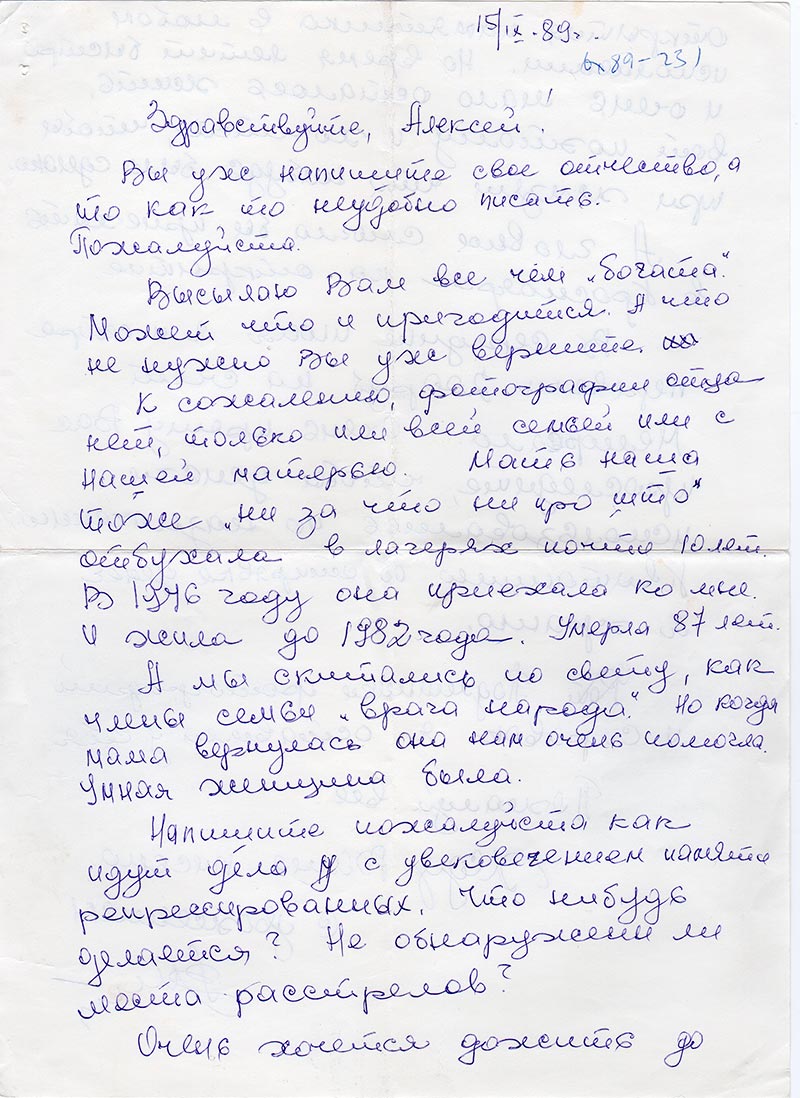 15/IX.89г.
вх 89-231
Здравствуйте, Алексей!
Вы уж напишите свое отчество, а
то как то неудобно писать.
Пожалуйста.
Высылаю Вам все чем „богата“.
Может что и пригодится. А что
не нужно Вы уж верните.
К сожалению, фотографии отца
нет, только или всей семьей или с
нашей матерью. Мать наша
тоже „ни за что ни про што“
отбухала в лагерях почти 10 лет.
В 1946 году она приехала ко мне.
и жила до 1982 года. Умерла 87 лет.
А мы скитались по свету, как
члены семьи „врага народа“. Но когда
мама вернулась она нам очень помогла.
Умная женщина была.
Напишите пожалуйста как
идут дела у с увековечением памяти
репрессированных. Что нибудь
делается? Не обнаружены ли
места расстрелов?
Очень хочется дожить до